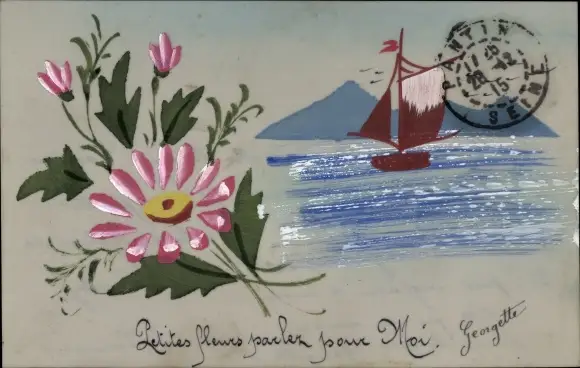 PANTIN
SEINE
Petites fleurs parlez pour Moi.
Georgette